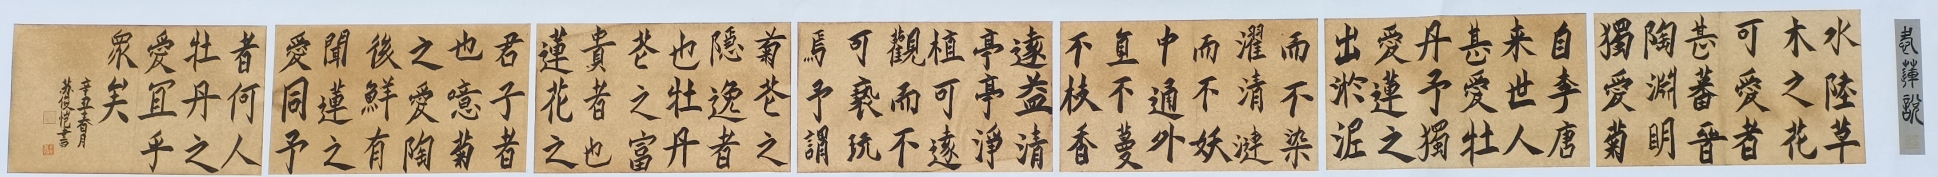 愛蓮說
水陸草
木之花
可愛者
甚蕃晉
陶淵明
獨愛菊
自李唐
来世人
甚愛牡
丹予獨
愛蓮之
出淤泥
而不染
濯清漣
而不妖
中通外
直不蔓
不枝香
遠益清
亭亭淨
植可遠
觀而不
可褻玩
焉予謂
菊花之
隱逸者
也牡丹
花之富
貴者也
蓮花之
君子者
也噫菊
之愛陶
後鮮有
聞蓮之
愛同予
者何人
牡丹之
愛宜乎
眾矣
辛丑春月